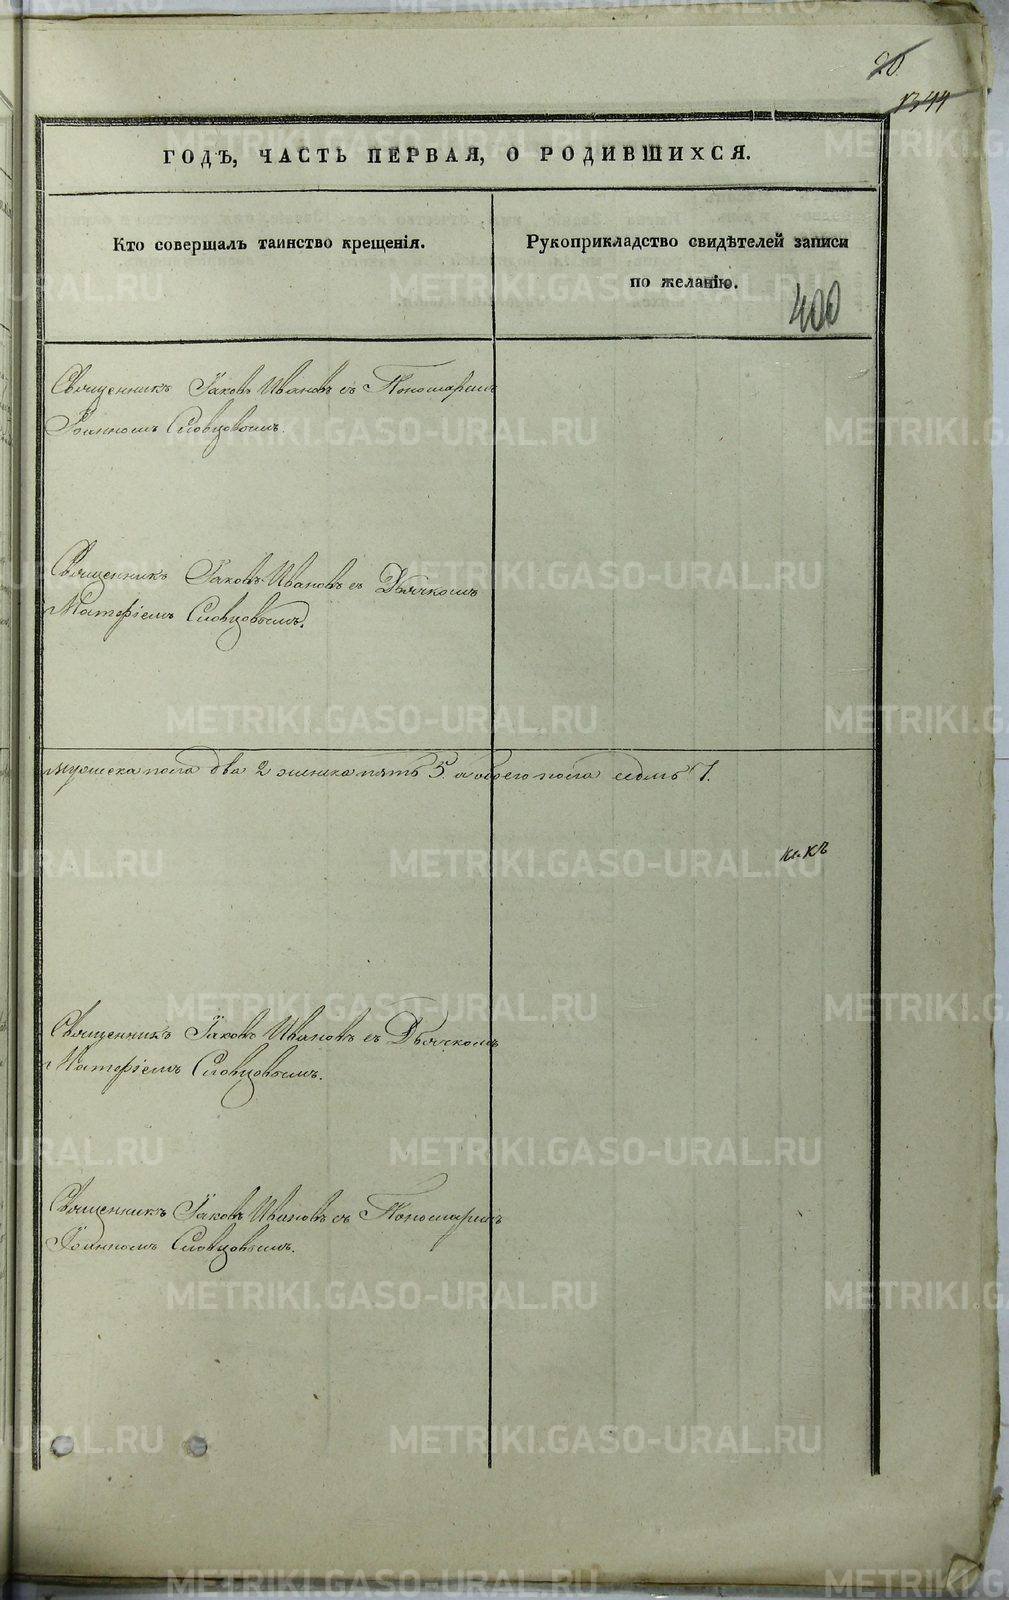 20.
1344
ГОДѢ, ЧАСТЬ ПЕРВАЯ, О РОДИВШИХСЯ.
Кто совершалъ таинство крещенія.
Рукоприкладство свидѣтелей записи
по желанію.
400
Священникъ Іаковъ Ивановъ съ Пономаремъ
Іоанномъ Словцовымъ.
Священникъ Іаковъ Ивановъ съ Дьячкомъ
Матфіемъ Словцовымъ.
мужеска пола два 2 женска пять 5 а обоего пола седмь 7.
Священникъ Іаковъ Ивановъ съ Дьячкомъ
Матфіемъ Словцовымъ.
Священникъ Іаковъ Ивановъ съ Пономаремъ
Іоанномъ Словцовымъ.
METRIKI.GASO-URAL.RU